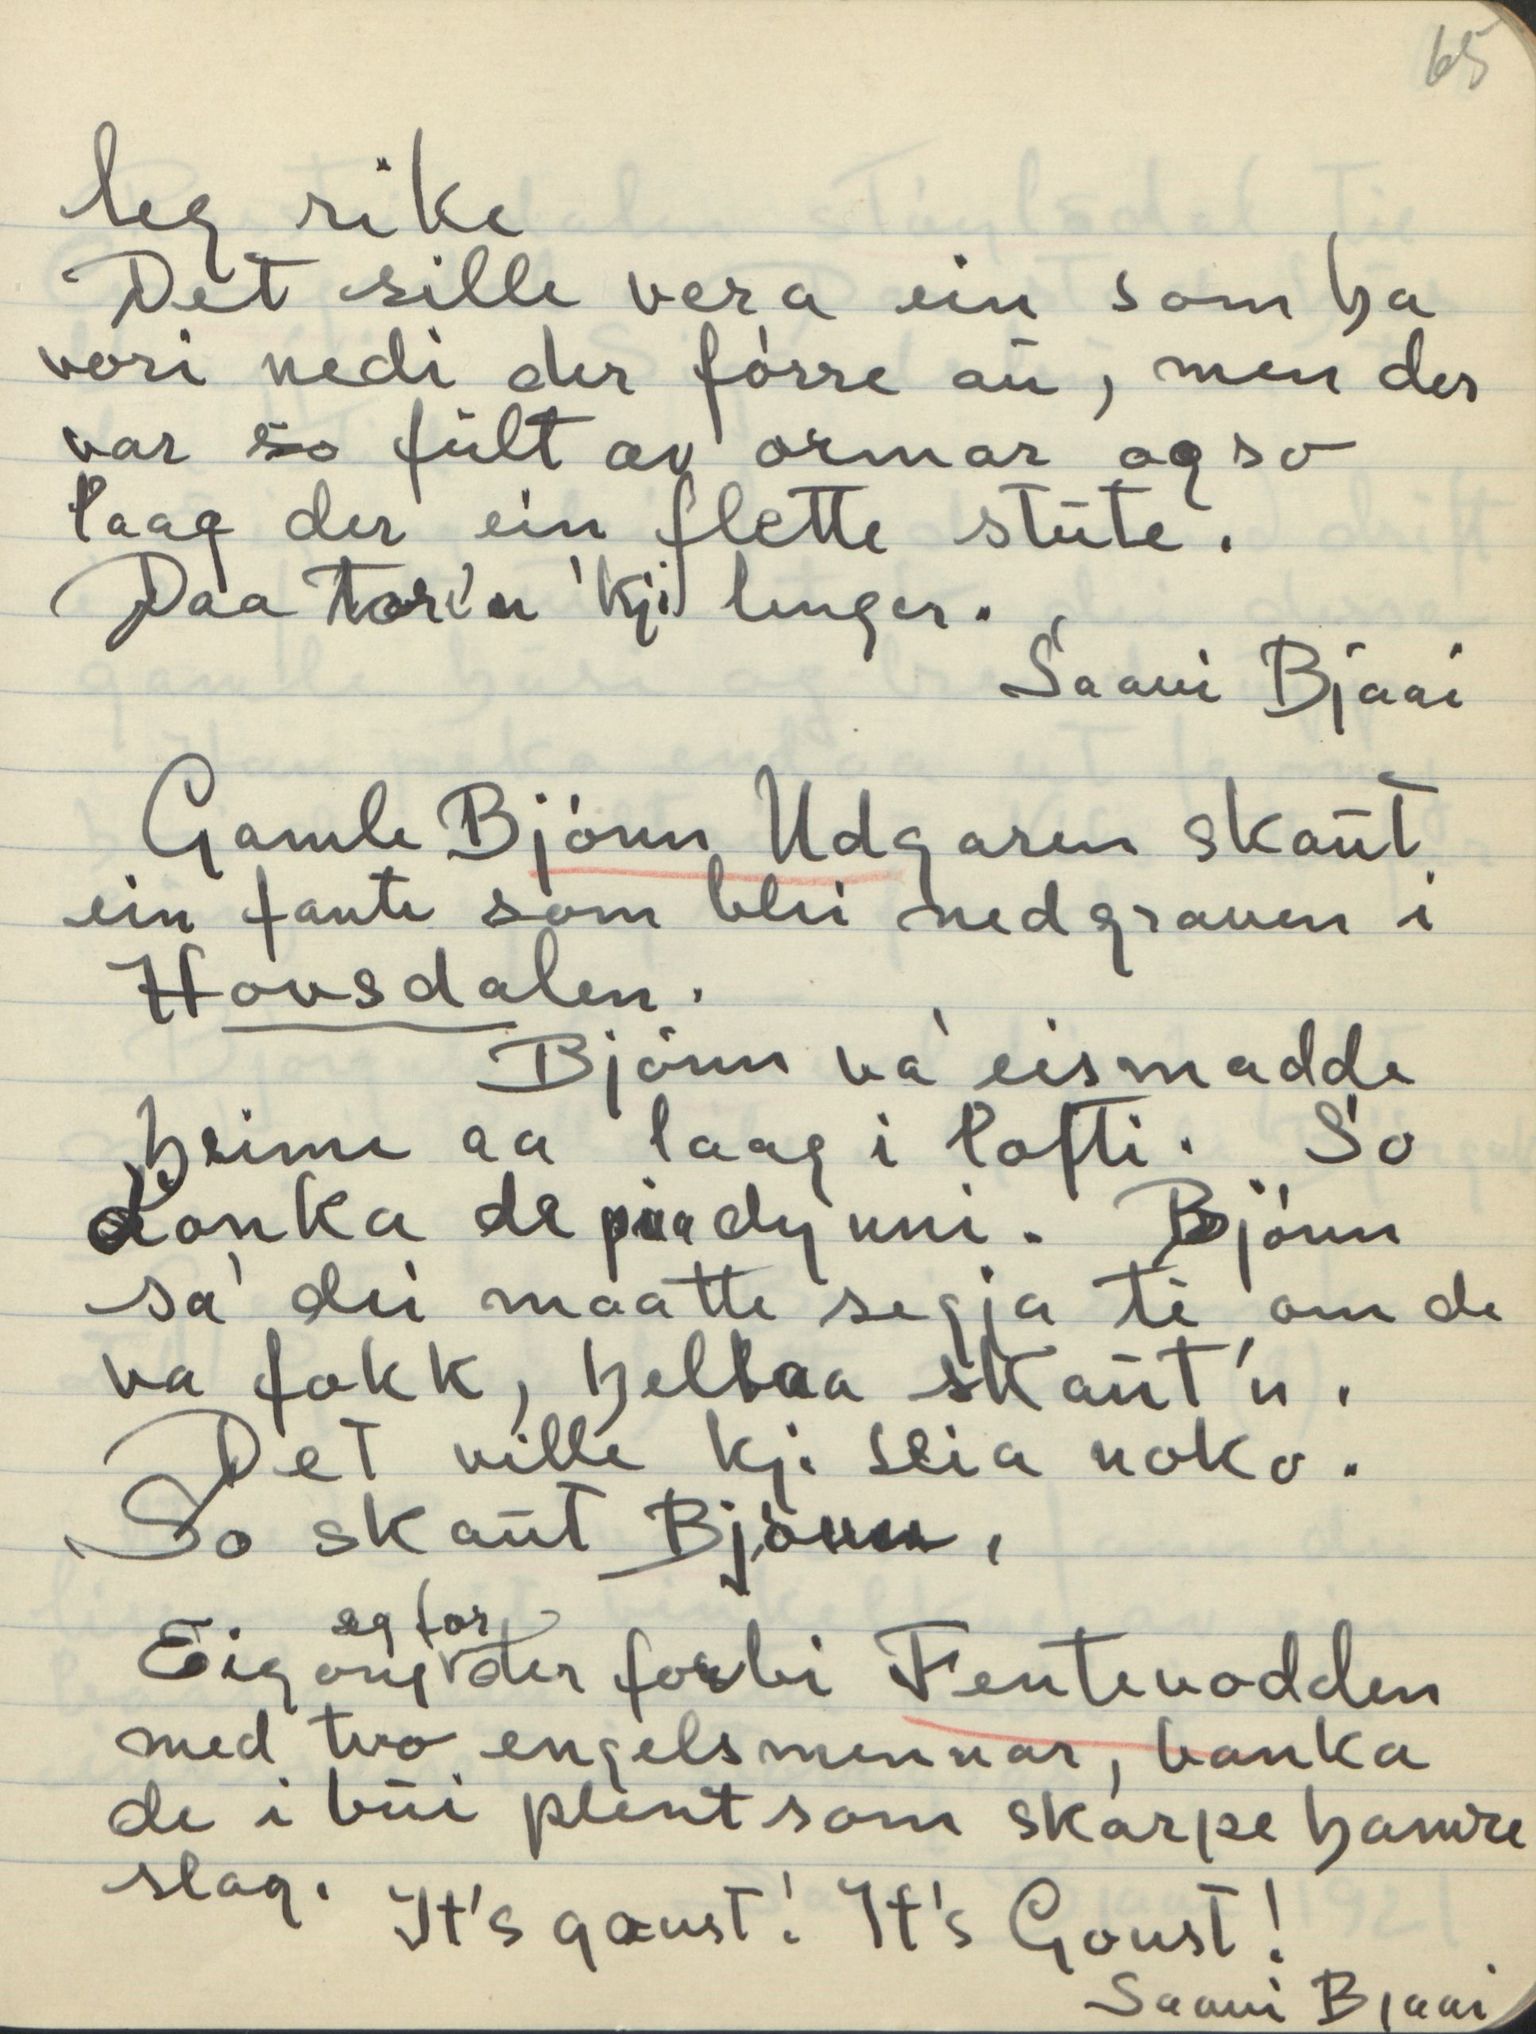 65
leg rike
Det sille vera ein som ha
vori nedi der fórre aũ, men der
var so fült av ormar og so
laag der ein flette stüte.
Daa tor'n 'kji lenger.
Saavi Bjaai
Gamle Bjónn Udgaren skaũt
ein fante som blei nedgraven i
Hovsdalen.
Bjónn va' eismadde
heime aa laag i lofti. So
donka de paa dynni. Bjónn
sa' dei maatte segja te om de
va fokk, hell aa skaũt'n.
Det ville kji seia noko.
So skaũt Bjónn,
eg for
Eigong der forbi Fentenodden
med tvo engelsmennar, banka
de i büi plent som skarpe hamre
slag. It's goust! It's Goust!
Saavi Bjaai